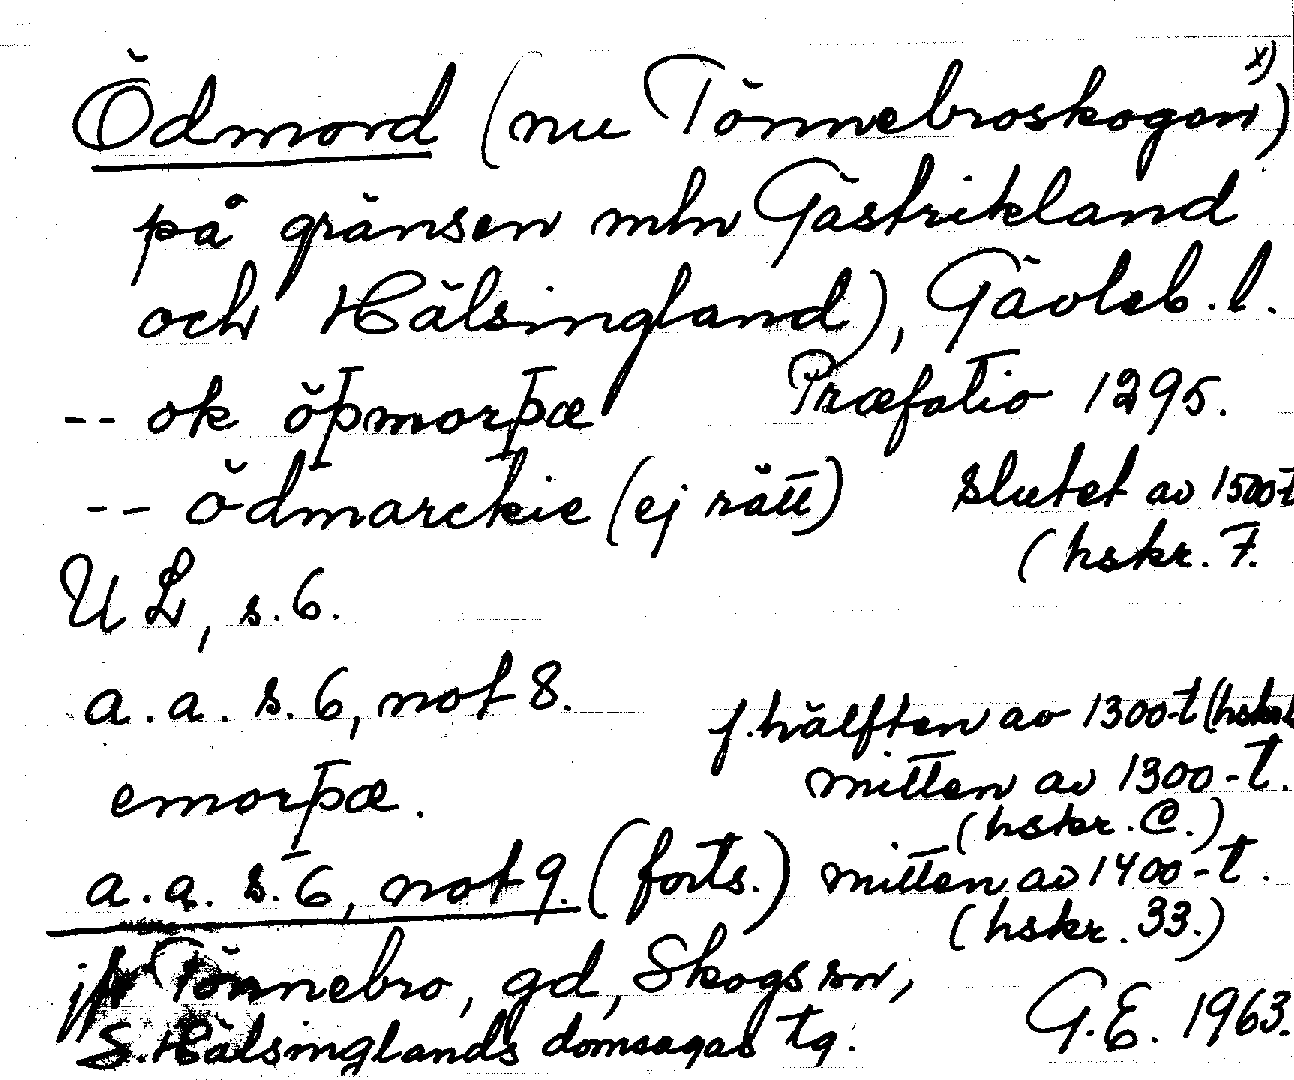 Ödmord (nu Tönnebroskogen x)
på gränsen mln Gästrikland
och Hälsingland), Gävleb. l.
-- ok öþmorþæ Præfatio 1295.
-- ödmarckie (ej rätt) slutet av 1500-t
(hskr. F.
UL, s. 6.
a. a. s. 6, not 8. f. hälften av 1300-t (hskr
emorþæ. mitten av 1300-t.
(hskr. C.)
a. a. s. 6, not 9. (forts.) mitten av 1400-t.
(hskr. 33.)
jfr Tönnebro, gd, Skogs sn,
S. Hälsinglands domsagas tg. G.E. 1963.